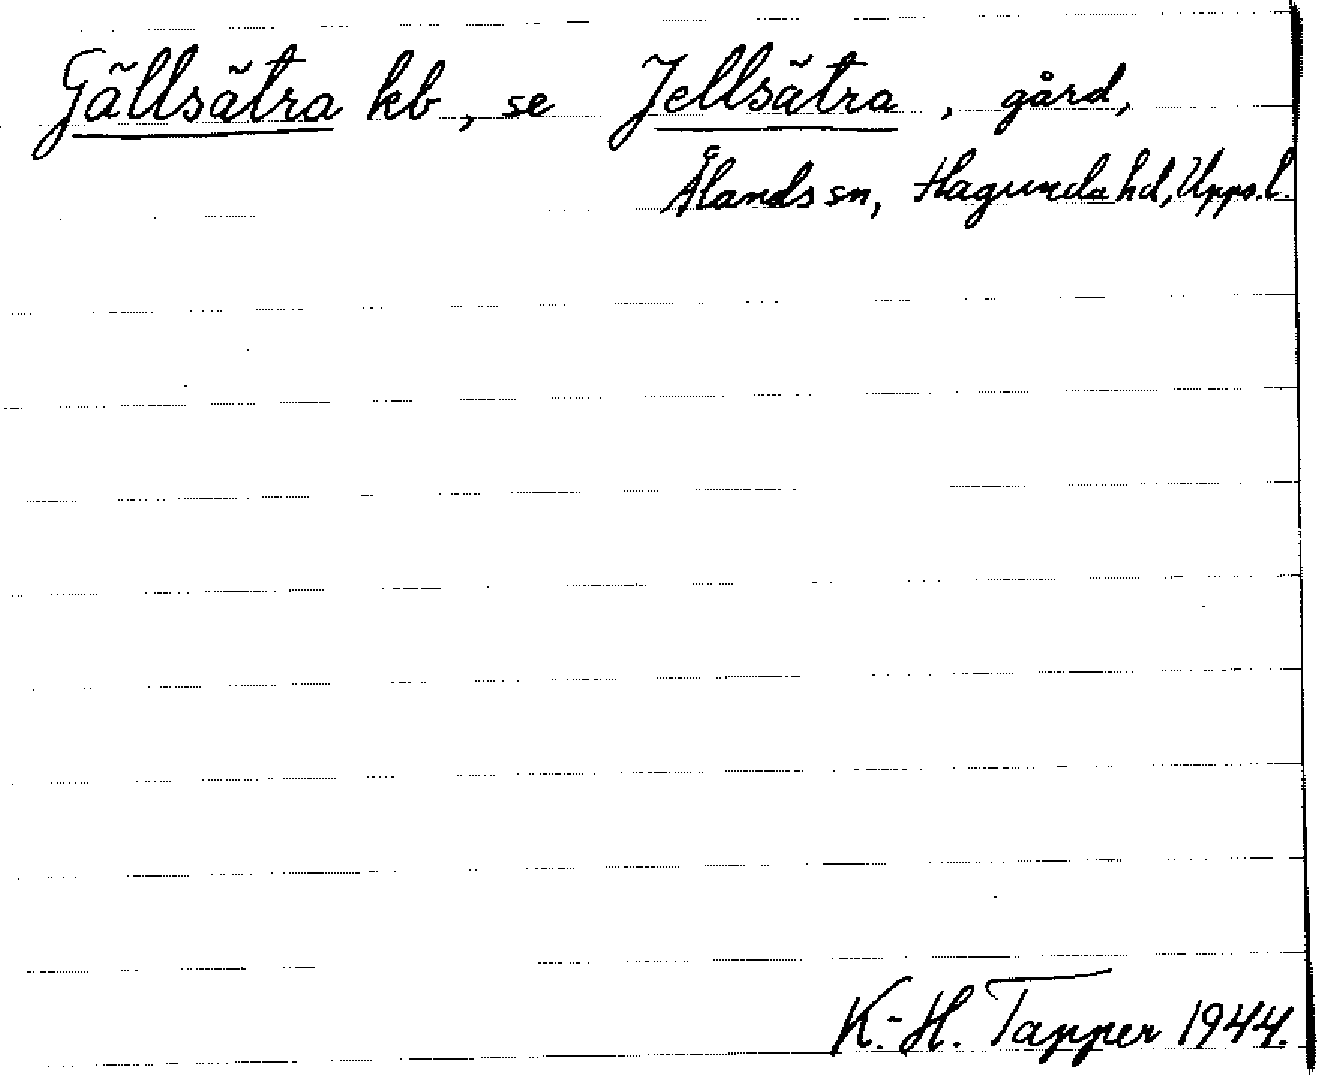 Gällsätra kb, se Jellsätra, gård,
Ålands sn, Hagunda hd, Upps.l.
K.-H. Tapper 1944.